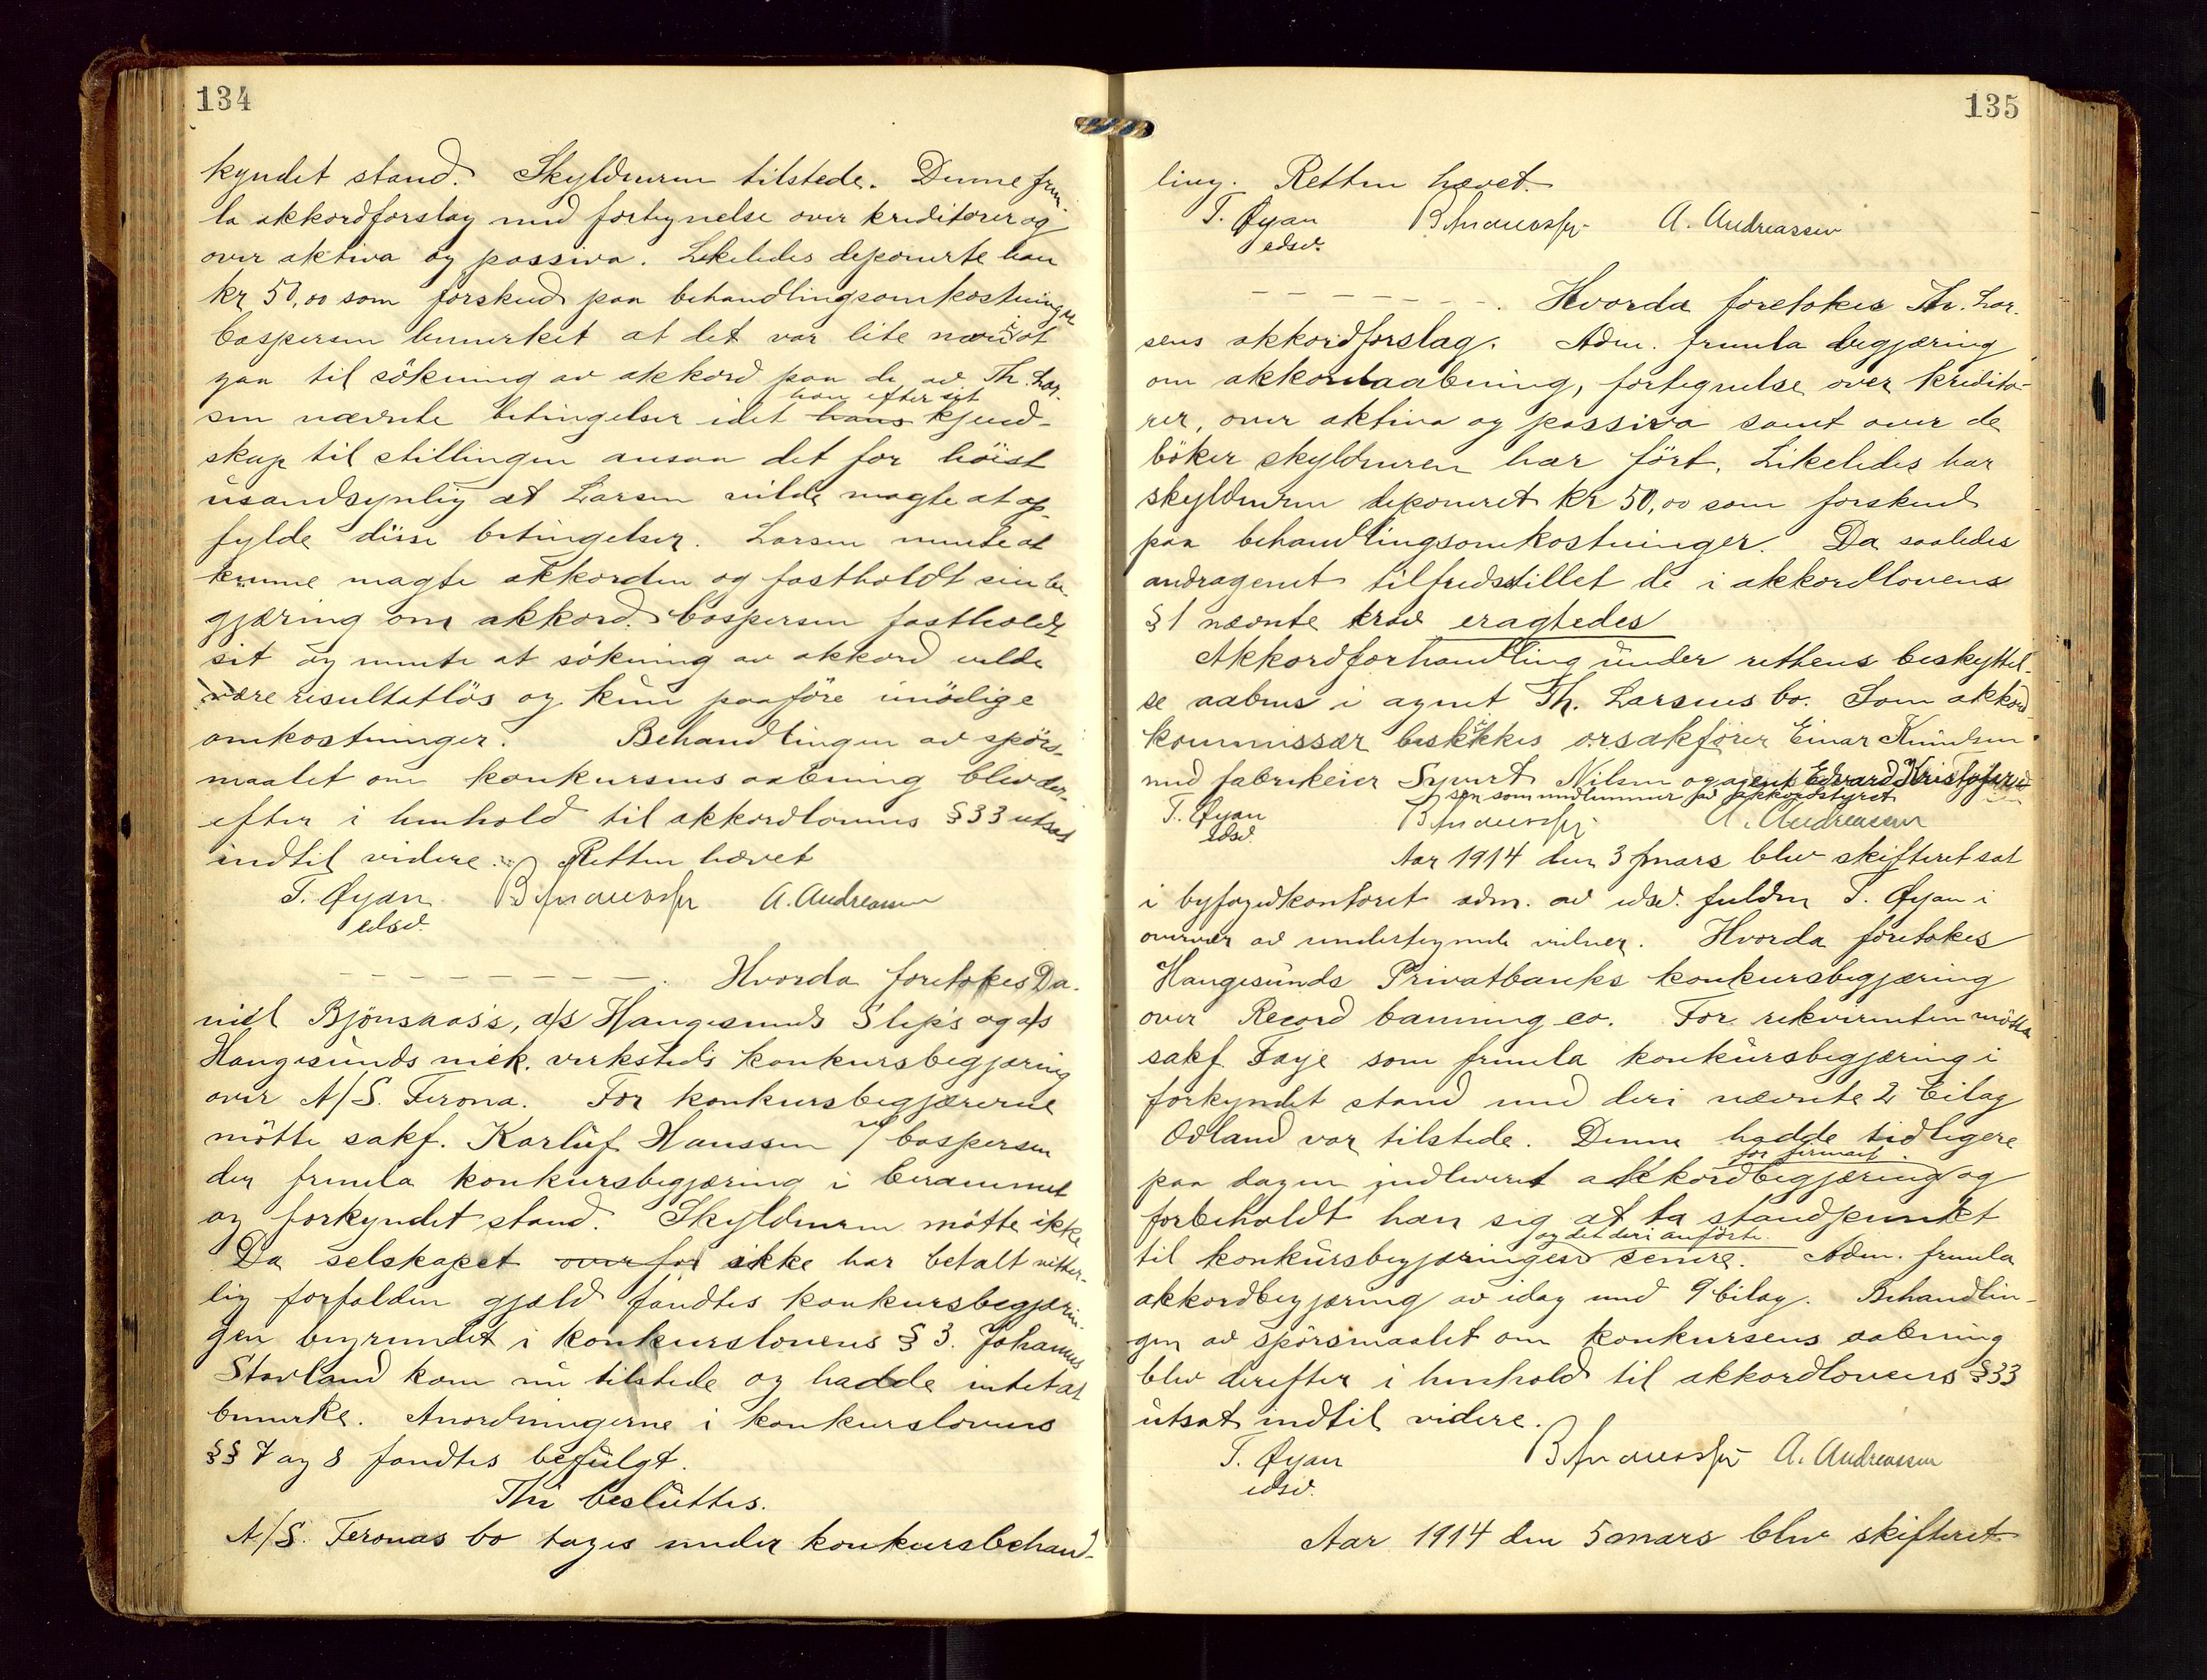 134
kyndet stand. Skyldneren tilstede. Denne frem-
la akkordforslag med fortegnelse over kreditorer og
over aktiva og passiva. Likeledes deponerte han
kr 50,00 som forskud paa behandlingsomkostninger
Caspersen bemerket at det var lite nærmest at
gaa til sökning av akkord paa de av Th. Lar-
han efter sit
sen nævnte betingelser idet hans kjend-
skap til stillingen ansaa det for höist
usandsynlig at Larsen vilde magte at op-
fylde disse betingelser. Larsen mente at
kunne magte akkorden og fastholdt sin be-
gjæring om akkord. Caspersen fastholdt
sit og mente at sökning av akkord vilde
være resultatlös og kun paaföre unödige
omkostninger. Behandlingen av spörs-
maalet om konkursens aabning blev der-
efter i henhold til akkordlovens § 33 utsat
indtil videre. Retten hævet
T. Øyan A. Andreassen
edsv.
Hvorda foretokes Da-
niel Bjönsaas's, a/s Haugesunds Slip's og a/s
Haugesunds mek. verksteds konkursbegjæring
over A/S. Ferona. For konkursbegjærerne
mötte sakf. Karluf Hanssen f Caspersen
der fremla konkursbegjæring i berammet
og forkyndet stand. Skyldneren mötte ikke
Da selskapet overfor ikke har betalt vitter-
lig forfalden gjæld fandtes konkursbegjærin-
gen begrundet i konkurslovens § 3. Johannes
Stavland kom nu tilstede og hadde intet at
bemerke. Anordningerne i konkurslovens
§§ 7 og 8 fandtes befulgt.
Thi besluttes.
A/S. Feronas bo tages under konkursbehand-
135
ling. Retten hævet.
T. Øyan A. Andreassen
edsv.
Hvorda foretokes Th. Lar-
sens akkordforslag. Adm. fremla begjæring
om akkordaabning, fortegnelse over kredito-
rer, over aktiva og passiva samt over de
böker skyldneren har fört. Likeledes har
skyldneren deponeret kr 50,00 som forskud
paa behandlingsomkostninger. Da saaledes
andragenet tilfredsstillet de i akkordlovens
§ 1 nævnte krav eragtedes
Akkordforhandling under rettens beskyttel-
se aabnes i agent Th. Larsens bo. Som akkord
kommissær beskikkes o.r.sakfører Einar Knudsen
med fabrikeier Syvert Nilsen og agent Edvard Kristofer-
sen som medlemmer av akkordstyret
T. Øyan A. Andreassen
edsv.
Aar 1914 den 3 mars blev skifteret sat
i byfogedkontoret adm. av edsv. fuldm T. Øyan i
overvær av undertegnede vidner. Hvorda foretokes
Haugesunds Privatbanks konkursbegjæring
over Record Canning co. For rekvirenten mötte
sakf. Faye som fremla konkursbegjæring i
forkyndet stand med deri nævnte 2 bilag
Odland var tilstede. Denne hadde tidligere
for firmaet
paa dagen indleveret akkordbegjæring og
forbeholdt han sig at ta standpunkt
og det deri anförte
til konkursbegjæringen senere. Adm. fremla
akkordbegjæring av idag med 9 bilag. Behandlin-
gen av spörsmaalet om konkursens aabning
blev derefter i henhold til akkordlovens § 33
utsat indtil videre.
T. Øyan A. Andreassen
edsv.
Aar 1914 den 5 mars blev skifteret